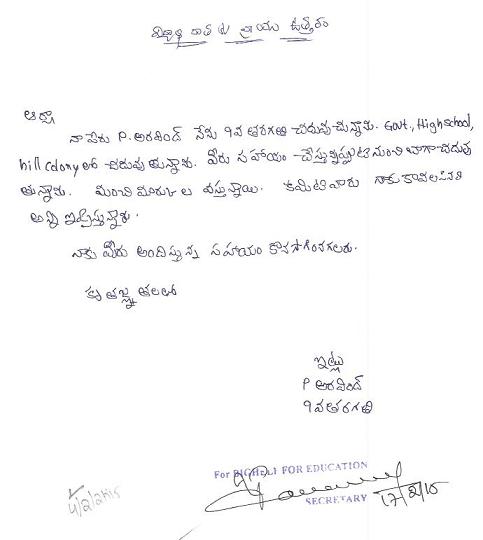 విద్యార్థి దాత కు వ్రాయు ఉత్తరం
ఆర్యా
నా పేరు P. అరవింద్ నేను 9వ తరగతి చదువుచున్నాను. Govt., High school,
hill Colony లో చదువు తున్నాను. మీరు సహాయం చేస్తున్నప్పటి నుంచి బాగా చదువు
తున్నాను. మంచి మార్కులు వస్తున్నాయి. కమిటీ వారు నాకు కావలసినవి
అన్ని ఇప్పిస్తున్నారు.
నాకు మీరు అందిస్తున్న సహాయం కొనసాగించగలరు.
కృతజ్ఞతలతో
ఇట్లు
P అరవింద్
9వ తరగతి
For FOR EDUCATION
SECRETARY
17/2/15
4/2/2015